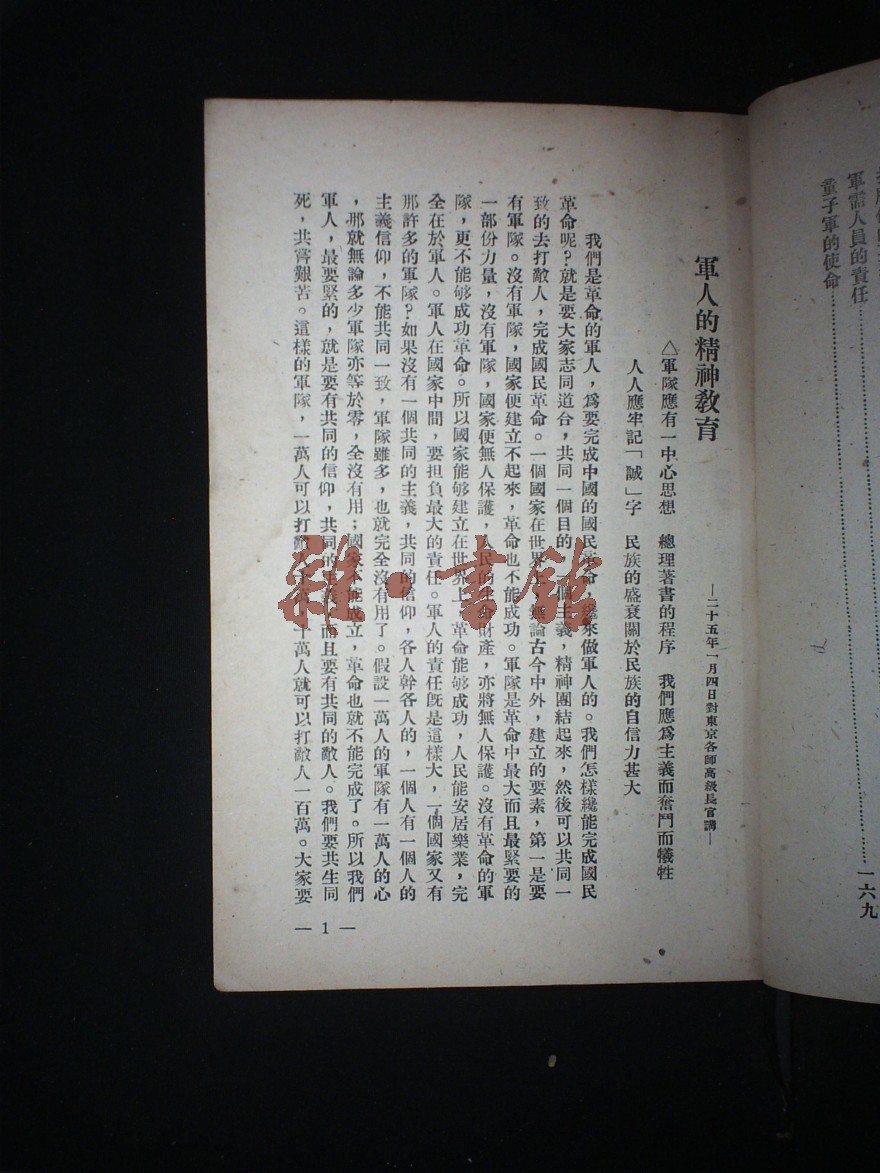 軍需人員的責任
童子軍的使命
一六九
軍人的精神教育
—二十五年一月四日對東京各師高級長官講—
△軍隊應有一中心思想　總理著書的程序　我們應爲主義而奮鬥而犧牲
人人應牢記「誠」字　民族的盛衰關於民族的自信力甚大
我們是革命的軍人，爲要完成中國的國民革命，纔來做軍人的。我們怎樣纔能完成國民
革命呢？就是要大家志同道合，共同一個目的，一個主義，精神團結起來，然後可以共同一
致的去打敵人，完成國民革命。一個國家在世界上，無論古今中外，建立的要素，第一是要
有軍隊。沒有軍隊，國家便建立不起來，革命也不能成功。軍隊是革命中最大而且最緊要的
一部份力量，沒有軍隊，國家便無人保護，人民的生命財產，亦將無人保護。沒有革命的軍
隊，更不能够成功革命。所以國家能够建立在世界上，革命能够成功，人民能安居樂業，完
全在於軍人。軍人在國家中間，要担負最大的責任。軍人的責任既是這樣大，一個國家又有
那許多的軍隊？如果沒有一個共同的主義，共同的信仰，各人幹各人的，一個人有一個人的
主義信仰，不能共同一致，軍隊雖多，也就完全沒有用了。假設一萬人的軍隊有一萬人的心
，那就無論多少軍隊亦等於零，全沒有用；國家不能成立，革命也就不能完成了。所以我們
軍人，最要緊的，就是要有共同的信仰，共同的主義，而且要有共同的敵人。我們要共生同
死，共嘗艱苦。這樣的軍隊，一萬人可以打敵人十萬，十萬人就可以打敵人一百萬。大家要
— 1 —
雜·書館